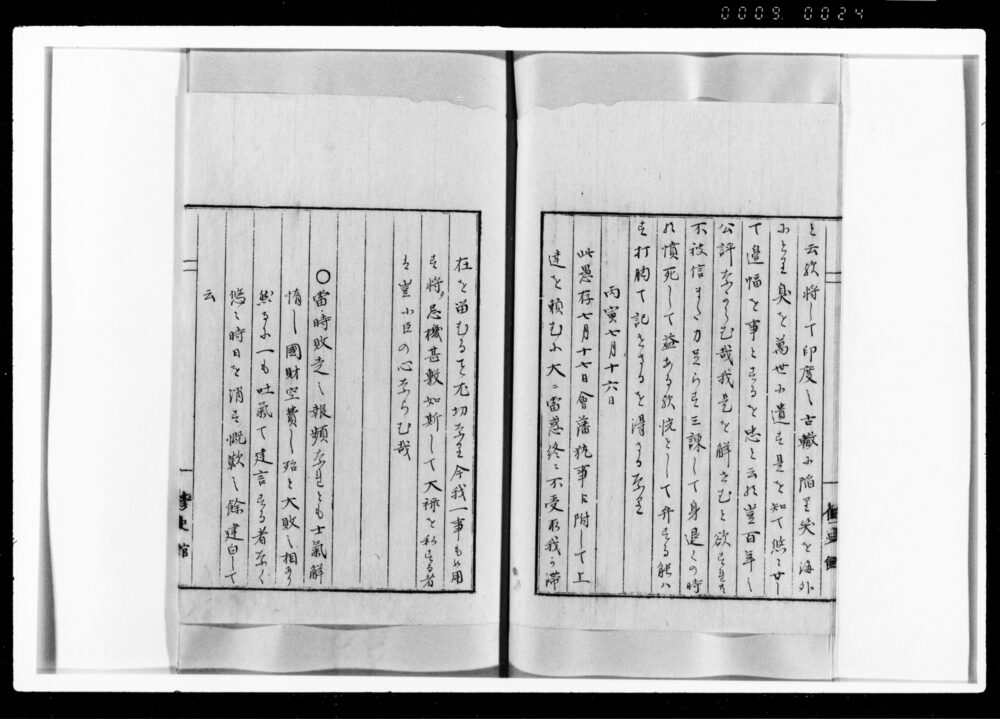 0009 0024
と云然將して印度之古轍ニ陥里笑を海外
ふとり臭を萬世ふ遺す是を知て悠々廿し
て邊幅を事とするを忠と云ハ豈百年之
公評なからむ哉我是を解さむと欲すれ共
不被信また刀足らす三諫して身退くの時
ハ憤死して益ある然恍として弁する能ハ
す打胸て記さゝるを得さるなり
丙寅七月十六日
此愚存七月十七日會藩執事に附して上
達を賴むふ大ニ當惑終ニ不受取我か滞
修史館
在を留むるを尤切なり今我一事も用
す將忌機甚敷如斯して大禄を私する者
豈小臣の心ならむ哉
○當時敗走之報頻なれとも士氣解
惰し國財空費し殆と大敗之相あり
然るふ一も吐氣て建言する者なく
悠々時日を消す慨歎之餘建白して
云
修史館